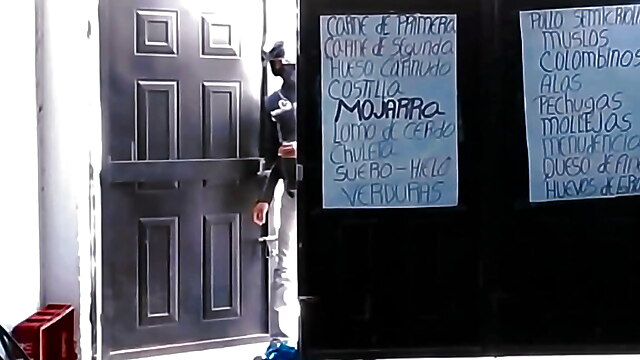 CARNE DE PRIMERA
CARNE DE SEGUNDA
HUESO CARNUDO
COSTILLA
MOJARRA
LOMO DE CERDO
CHULETA
SUERO-HIELO
VERDURAS
POLLO SEMICRIOLLO
MUSLOS
COLOMBINOS
ALAS
PECHUGAS
MOLLEJAS
MENUDENCIA
QUESO DE
HUEVOS DE